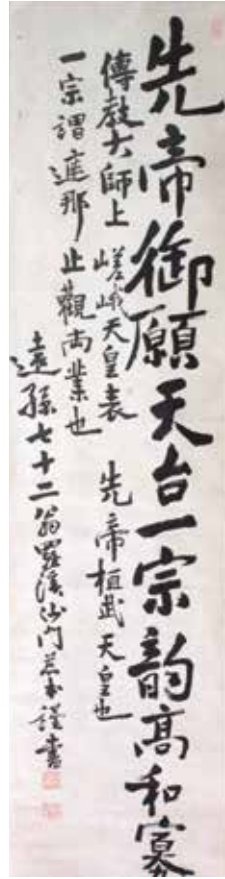 先帝御願天台一宗韵高和寡
傳教大師上 嵯峨天皇表 先帝桓武天皇也
一宗謂遮那止觀両業也
遠孫七十二翁羅溪沙門慈本謹書